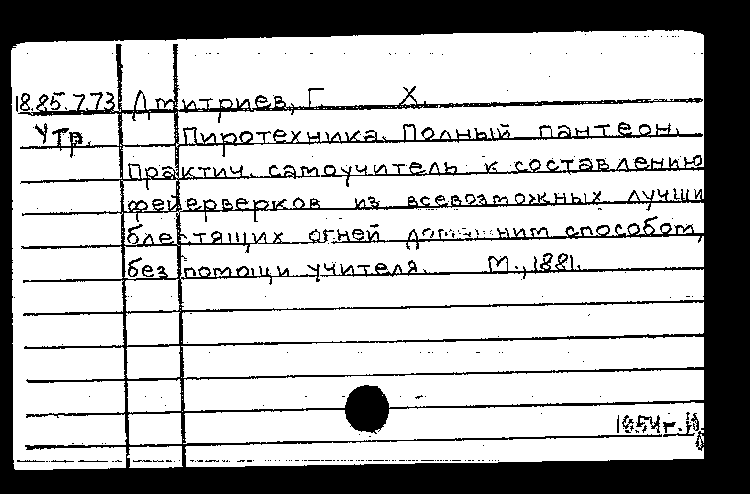 18.85.7.73 Дмитриев, Г. Х.
Утр. Пиротехника. Полный пантеон.
Практич. самоучитель к составлению
фейерверков из всевозможных лучши
блестящих огней домашним способом,
без помощи учителя. М., 1881.
1954г.